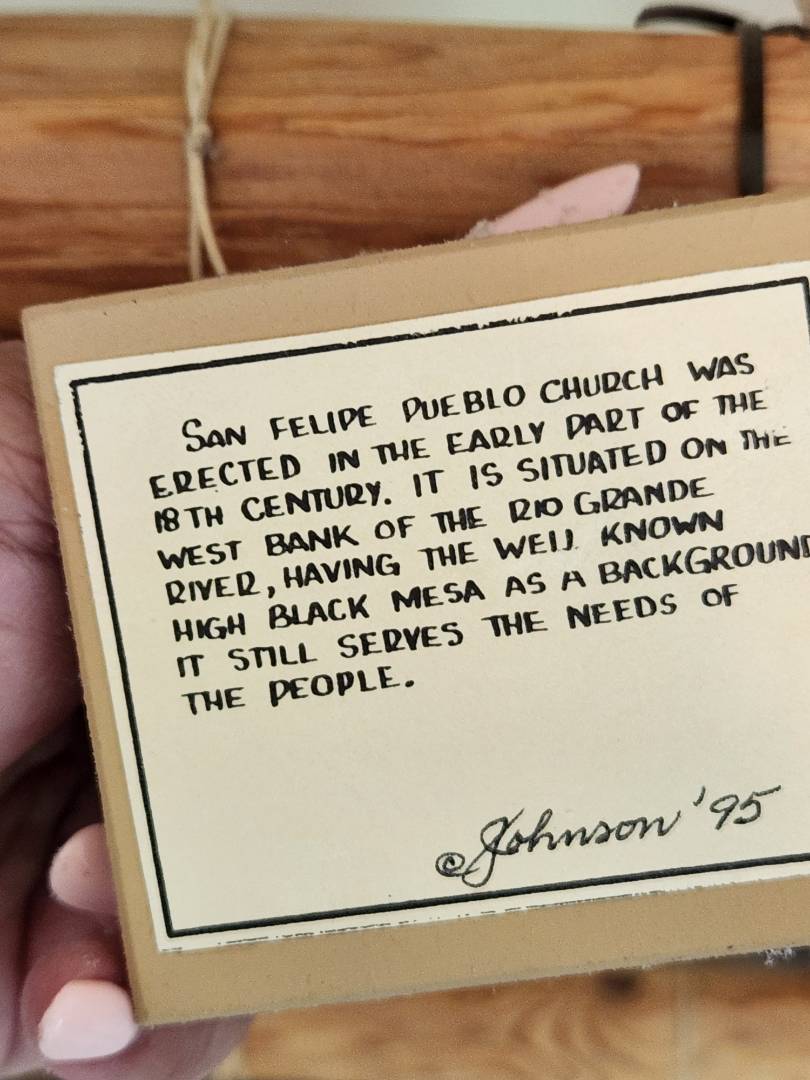 SAN FELIPE PUEBLO CHURCH WAS
ERECTED IN THE EARLY PART OF THE
18TH CENTURY. IT IS SITUATED ON THE
WEST BANK OF THE RIO GRANDE
RIVER, HAVING THE WELL KNOWN
HIGH BLACK MESA AS A BACKGROUND
IT STILL SERVES THE NEEDS OF
THE PEOPLE.
© Johnson '95